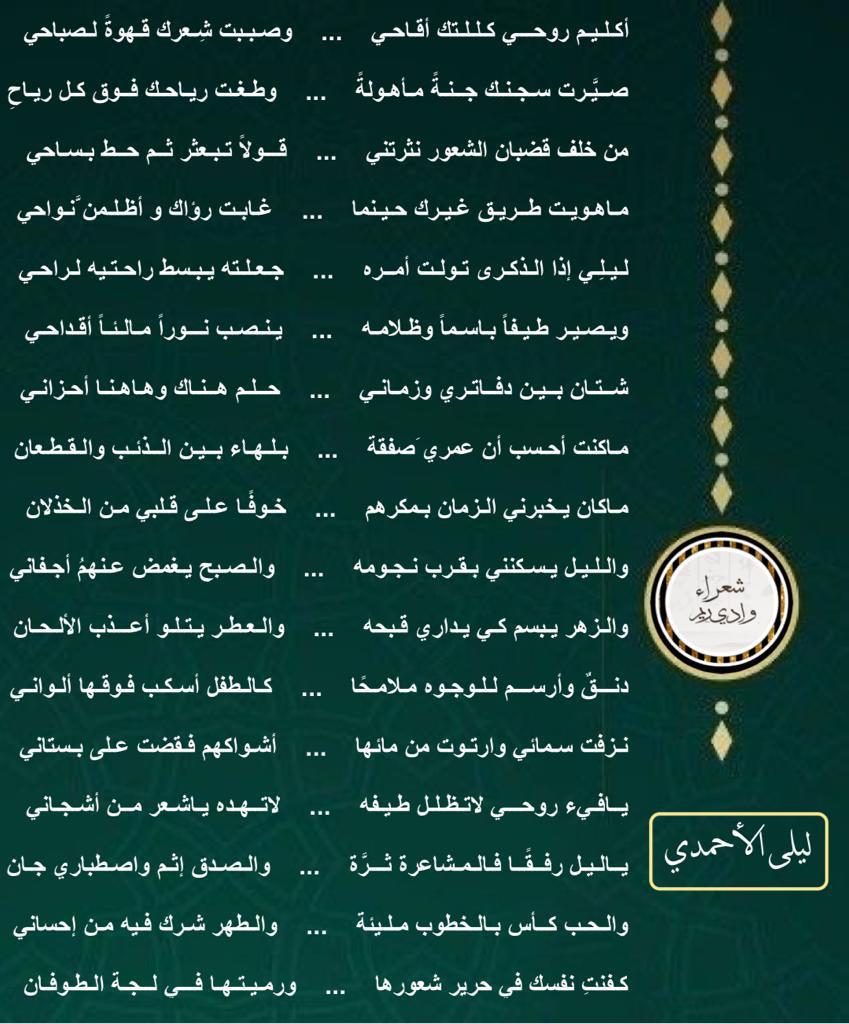 أكليم روحي كللتك أقاحي ... وصببت شِعرك قهوةً لصباحي
صيَّرت سجنك جنةً مأهولةً ... وطغت رياحك فوق كل رياحِ
من خلف قضبان الشعور نثرتني ... قولاً تبعثر ثم حط بساحي
ماهويت طريق غيرك حينما ... غابت رؤاك و أظلمن َّنواحي
ليلِي إذا الذكرى تولت أمره ... جعلته يبسط راحتيه لراحي
ويصير طيفاً باسماً وظلامه ... ينصب نوراً مالئاً أقداحي
شتان بين دفاتري وزماني ... حلم هناك وهاهنا أحزاني
ماكنت أحسب أن عمري َصفقة ... بلهاء بين الذئب والقطعان
ماكان يخبرني الزمان بمكرهم ... خوفًا على قلبي من الخذلان
والليل يسكنني بقرب نجومه ... والصبح يغمض عنهمُ أجفاني
والزهر يبسم كي يداري قبحه ... والعطر يتلو أعذب الألحان
دنقٌ وأرسم للوجوه ملامحًا ... كالطفل أسكب فوقها ألواني
نزفت سمائي وارتوت من مائها ... أشواكهم فقضت على بستاني
يافيء روحي لاتظلل طيفه ... لاتهده ياشعر من أشجاني
ياليل رفقًا فالمشاعرة ثرَّة ... والصدق إثم واصطباري جان
والحب كأس بالخطوب مليئة ... والطهر شرك فيه من إحساني
كفنتِ نفسك في حرير شعورها ... ورميتها في لجة الطوفان
شعراء
وادي ريم
ليلى الأحمدي